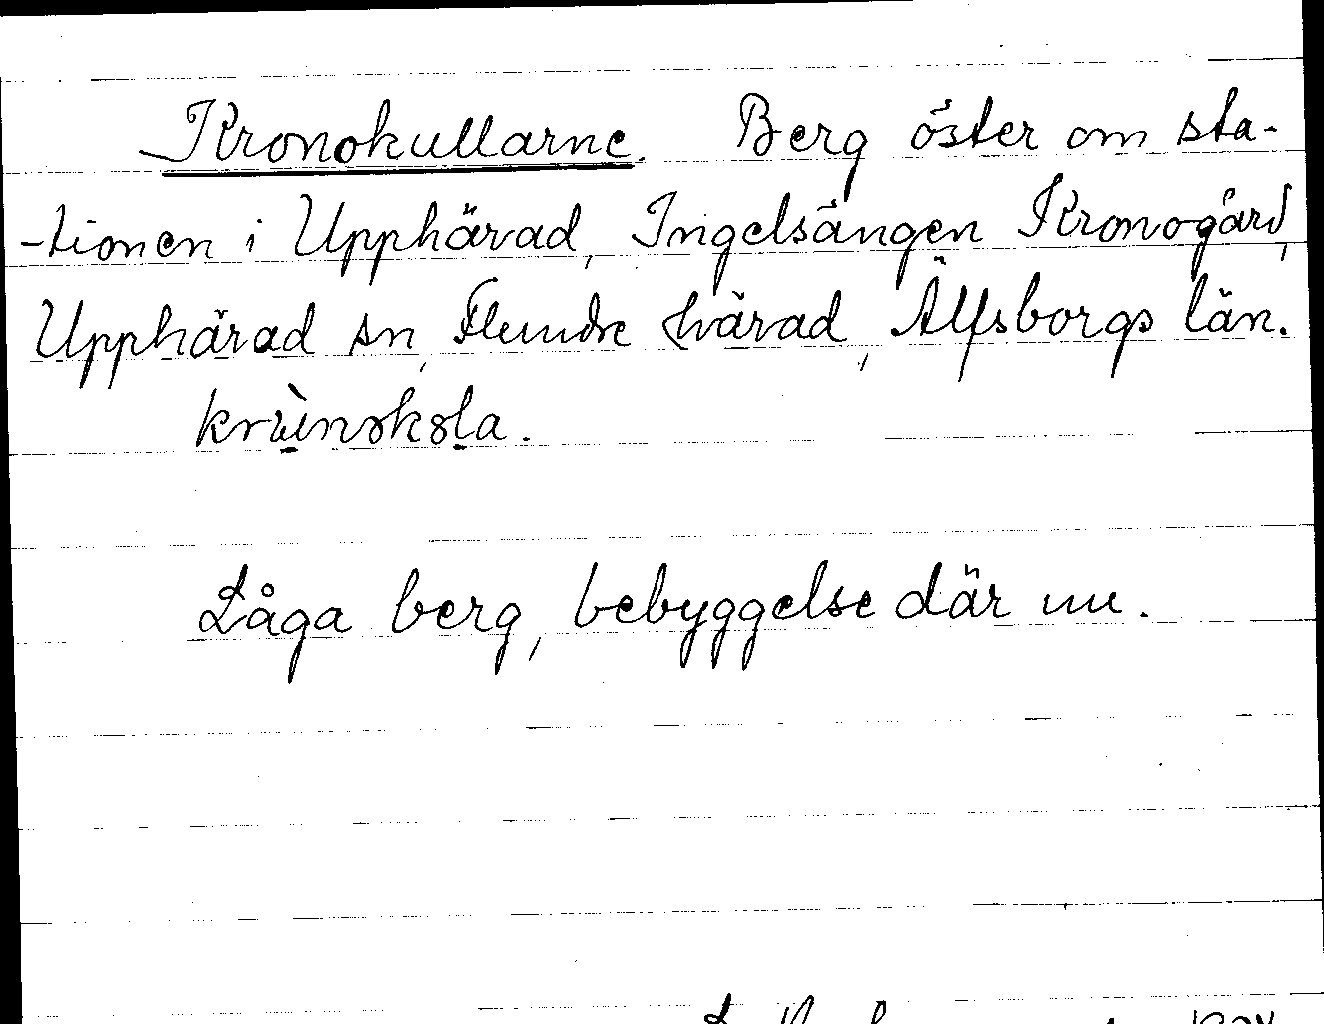 Kronokullarne. Berg öster om sta-
-tionen i Upphärad, Ingelsängen Kronogård,
Upphärad sn, Flundre härad, Älfsborgs län.
Låga berg, bebyggelse där nu.